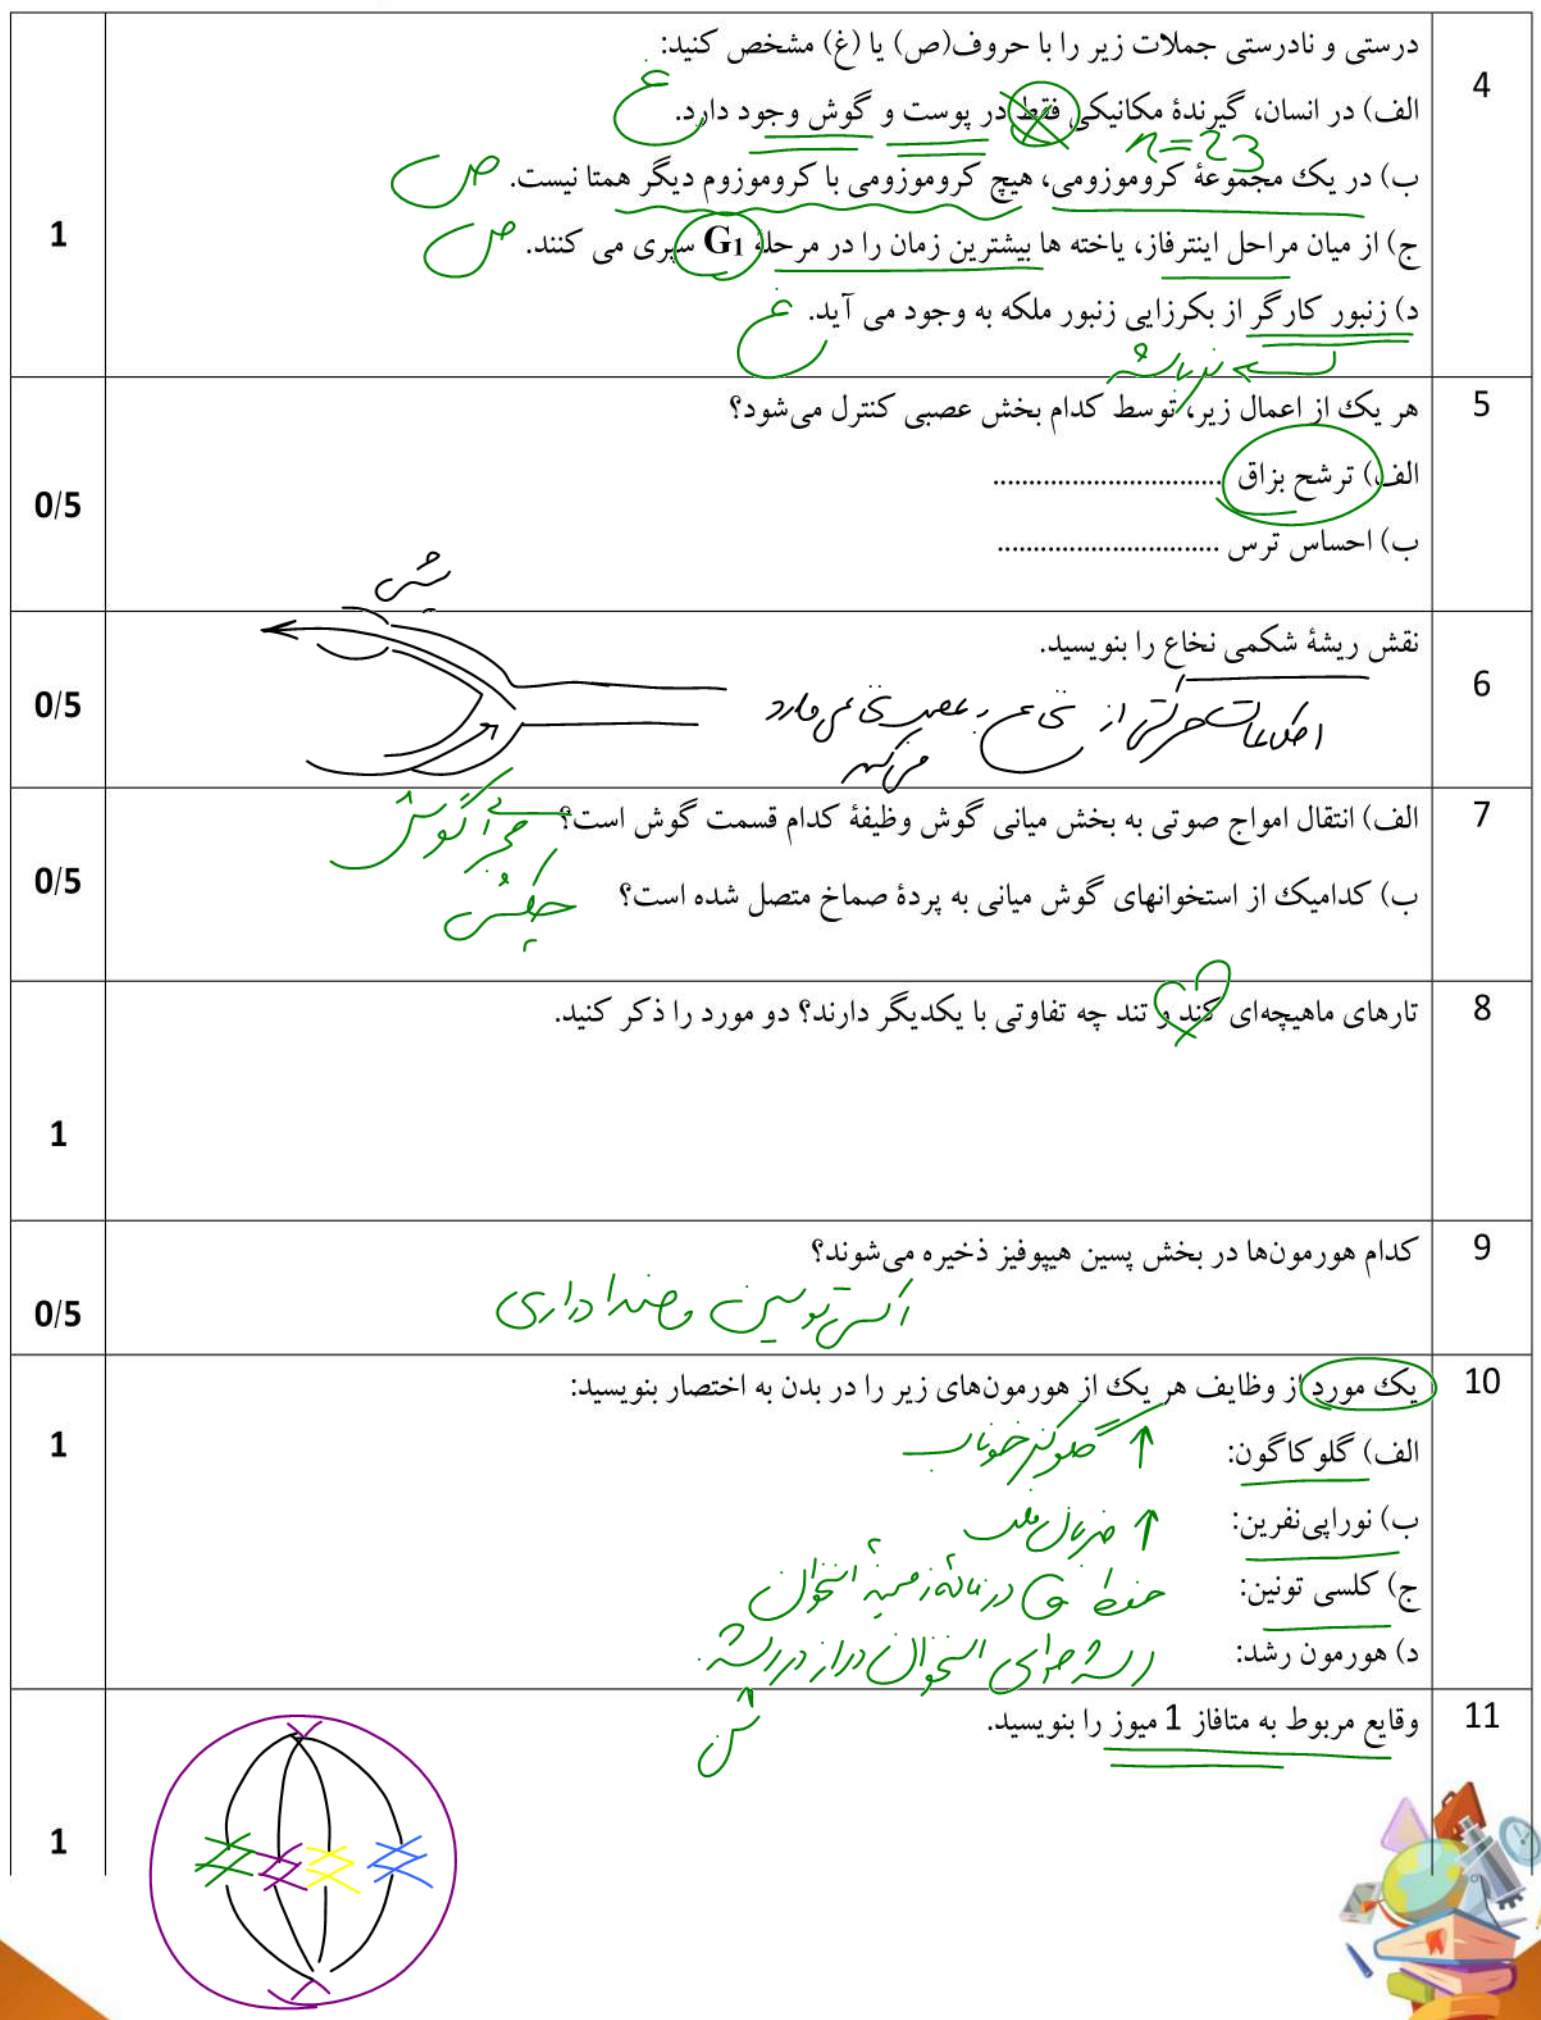 4
درستی و نادرستی جملات زیر را با حروف(ص) یا (غ) مشخص کنید:
الف) در انسان، گیرندهٔ مکانیکی فقط در پوست و گوش وجود دارد. غ
n=23
ب) در یک مجموعهٔ کروموزومی، هیچ کروموزومی با کروموزوم دیگر همتا نیست. ص
1
ج) از میان مراحل اینترفاز، یاخته ها بیشترین زمان را در مرحلهٔ G1 سپری می کنند. ص
د) زنبور کارگر از بکرزایی زنبور ملکه به وجود می آید. غ
5
هر یک از اعمال زیر، توسط کدام بخش عصبی کنترل می‌شود؟
0/5
الف) ترشح بزاق ...............................
ب) احساس ترس ...............................
6
نقش ریشهٔ شکمی نخاع را بنویسید.
0/5
اطلاعات حرکتی از نخاع به عصب نخاعی وارد
می‌کند
7
الف) انتقال امواج صوتی به بخش میانی گوش وظیفهٔ کدام قسمت گوش است؟
0/5
ب) کدامیک از استخوانهای گوش میانی به پردهٔ صماخ متصل شده است؟ چکشی
8
تارهای ماهیچه‌ای کند و تند چه تفاوتی با یکدیگر دارند؟ دو مورد را ذکر کنید.
1
9
کدام هورمون‌ها در بخش پسین هیپوفیز ذخیره می‌شوند؟
0/5
اکسی توسین و ضدادراری
10
یک مورد از وظایف هر یک از هورمون‌های زیر را در بدن به اختصار بنویسید:
1
الف) گلوکاگون: ↑ گلوکز خوناب
ب) نوراپی‌نفرین: ↑ ضربان قلب
ج) کلسی تونین: حفظ در مادهٔ زمینهٔ استخوان
د) هورمون رشد: رشد طولی استخوان دراز در
11
وقایع مربوط به متافاز 1 میوز را بنویسید.
1